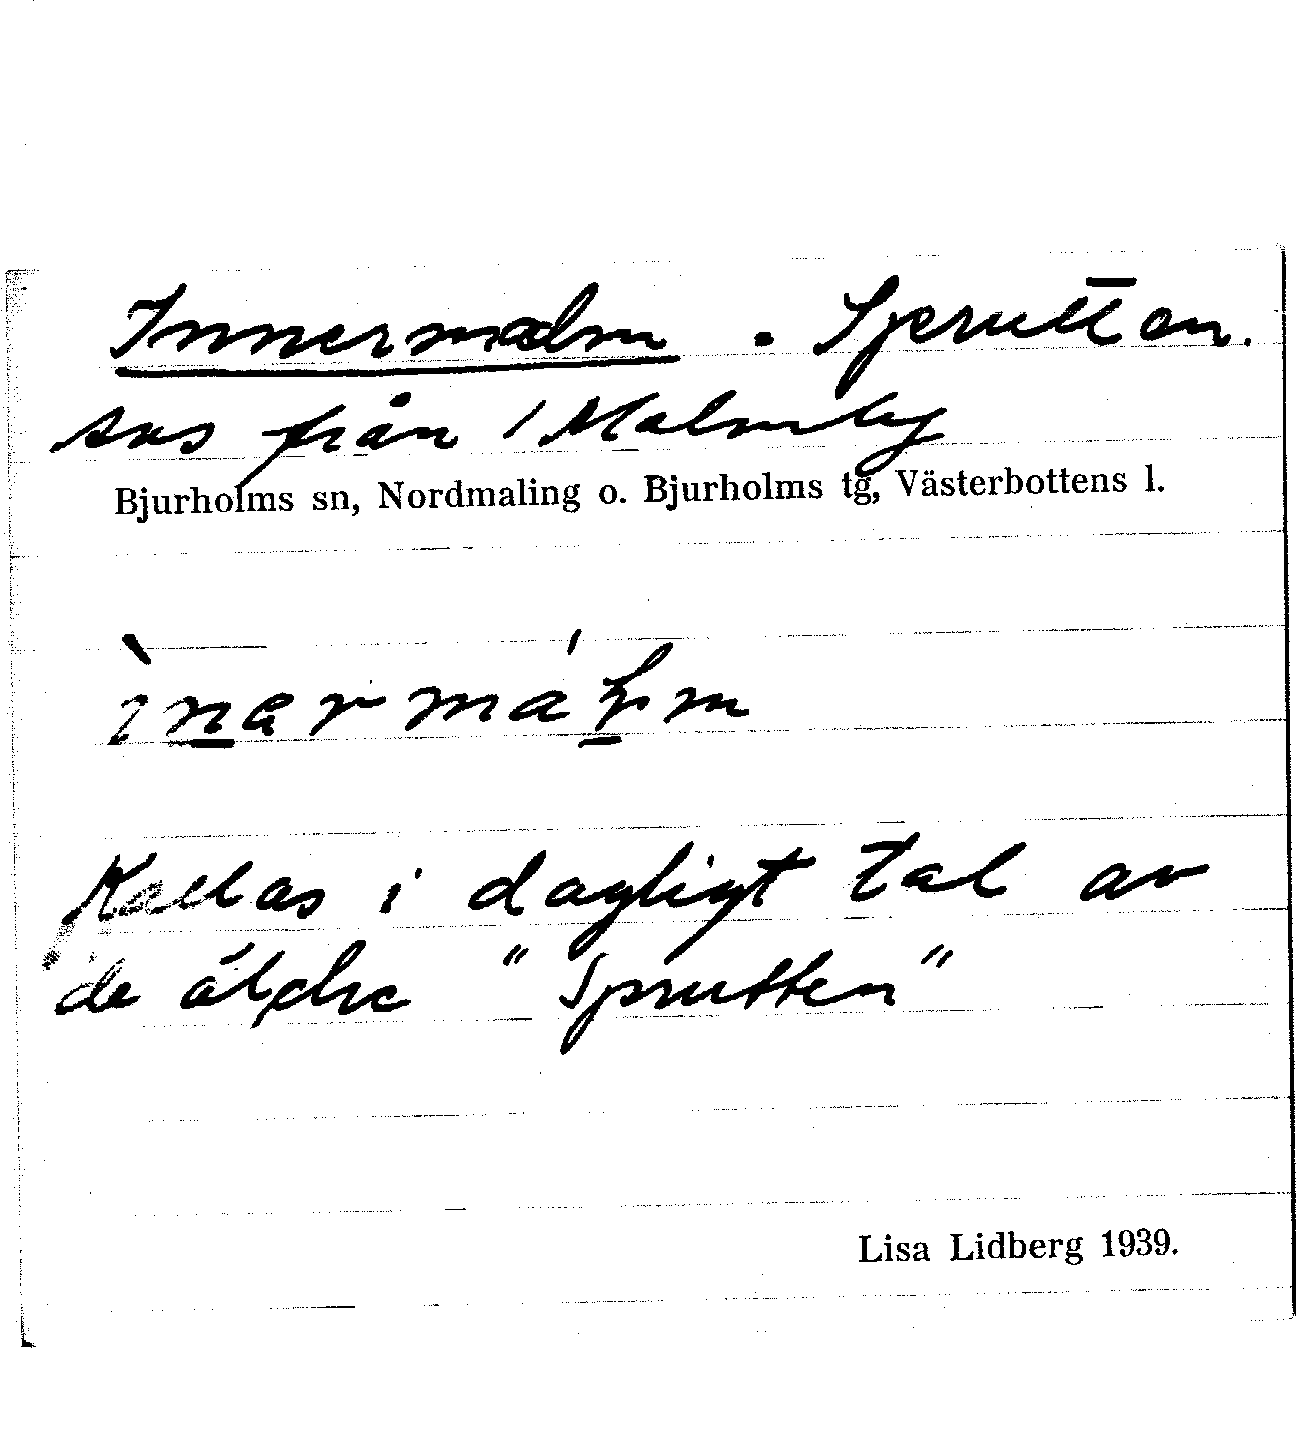 Innermalm. Sprutten.
sus från / Malmby
Bjurholms sn, Nordmaling o. Bjurholms tg, Västerbottens l.
ìnarmálm
Kallas i dagligt tal av
de äldre "Sprutten"
Lisa Lidberg 1939.